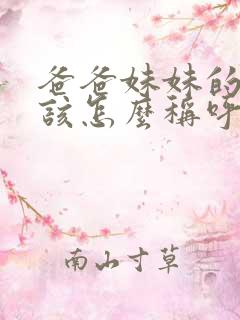 爸爸妹妹的
该怎麼稱呼
南山寸草